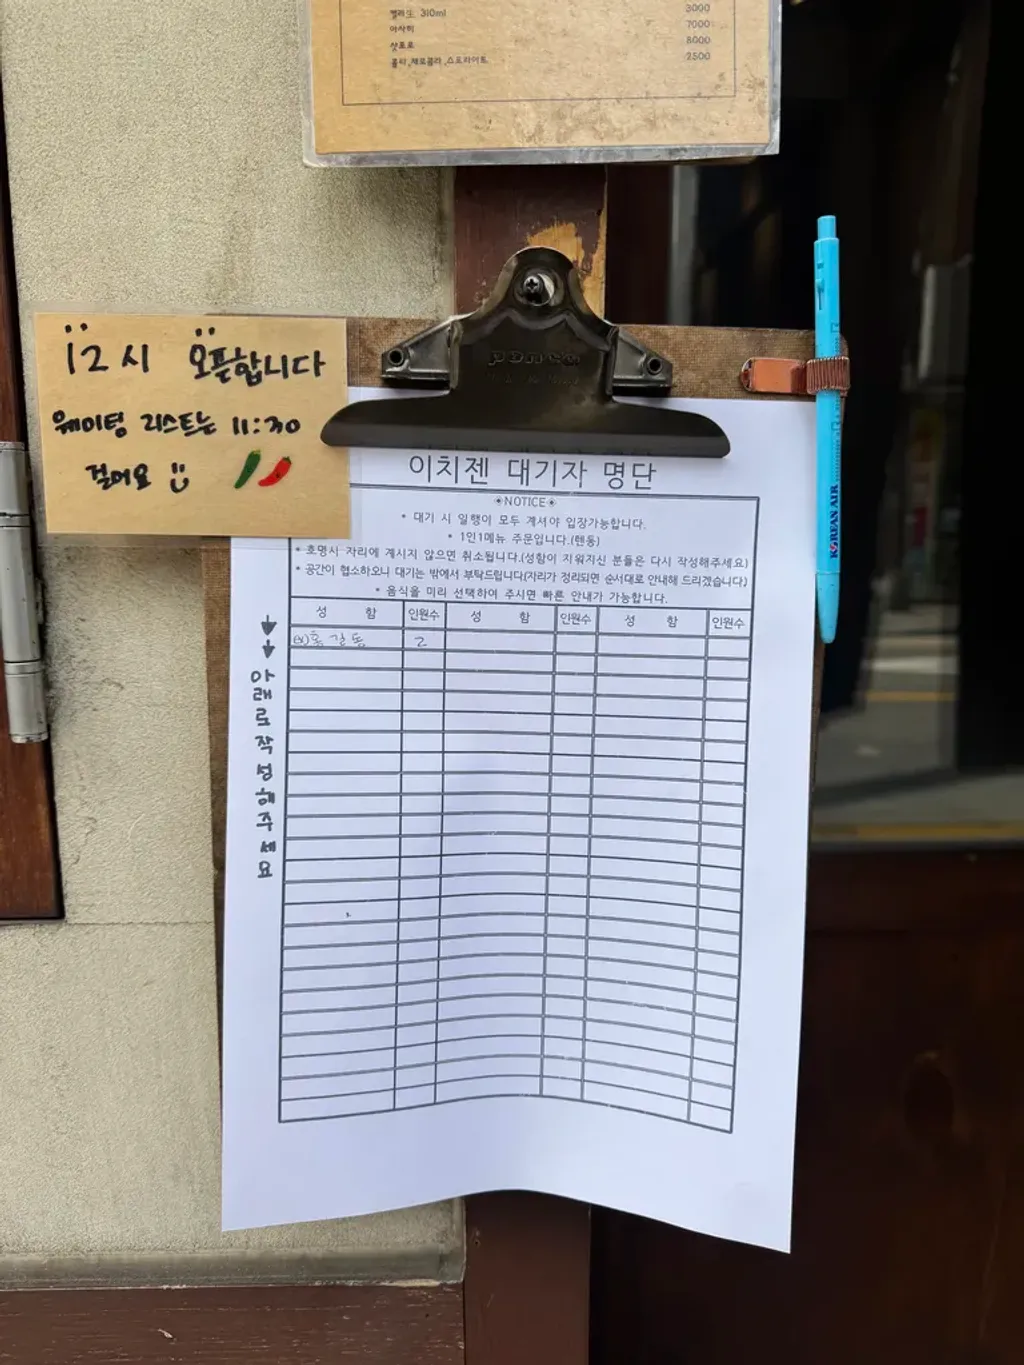 310ml 3000
아사히 7000
삿포로 8000
콜라,제로콜라,스프라이트 2500
12시 오픈합니다
웨이팅 리스트는 11:30
걸어요
이치젠 대기자 명단
◈NOTICE◈
* 대기 시 일행이 모두 계셔야 입장가능합니다.
* 1인1메뉴 주문입니다.(텐동)
* 호명시 자리에 계시지 않으면 취소됩니다.(성함이 지워지신 분들은 다시 작성해주세요)
* 공간이 협소하오니 대기는 밖에서 부탁드립니다(자리가 정리되면 순서대로 안내해 드리겠습니다)
* 음식을 미리 선택하여 주시면 빠른 안내가 가능합니다.
성 함 인원수 성 함 인원수 성 함 인원수
(예)홍길동 2
아래로작성해주세요
KOREAN AIR